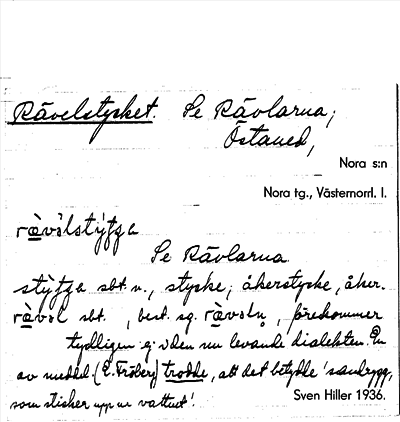 Rävelstycket. Se Rävlarna,
Östaned,
Nora s:n
Nora tg., Västernorrl. l.
Se Rävlarna
sbt. n., stycke; åkerstycke, åker.
sbt. , best. sg. , förekommer
tydligen ej i den nu levande dialekten. En
av meddel. (E. Fröberg) trodde, att det betydde 'sandrygg,
som sticker upp ur vattnet'.
Sven Hiller 1936.